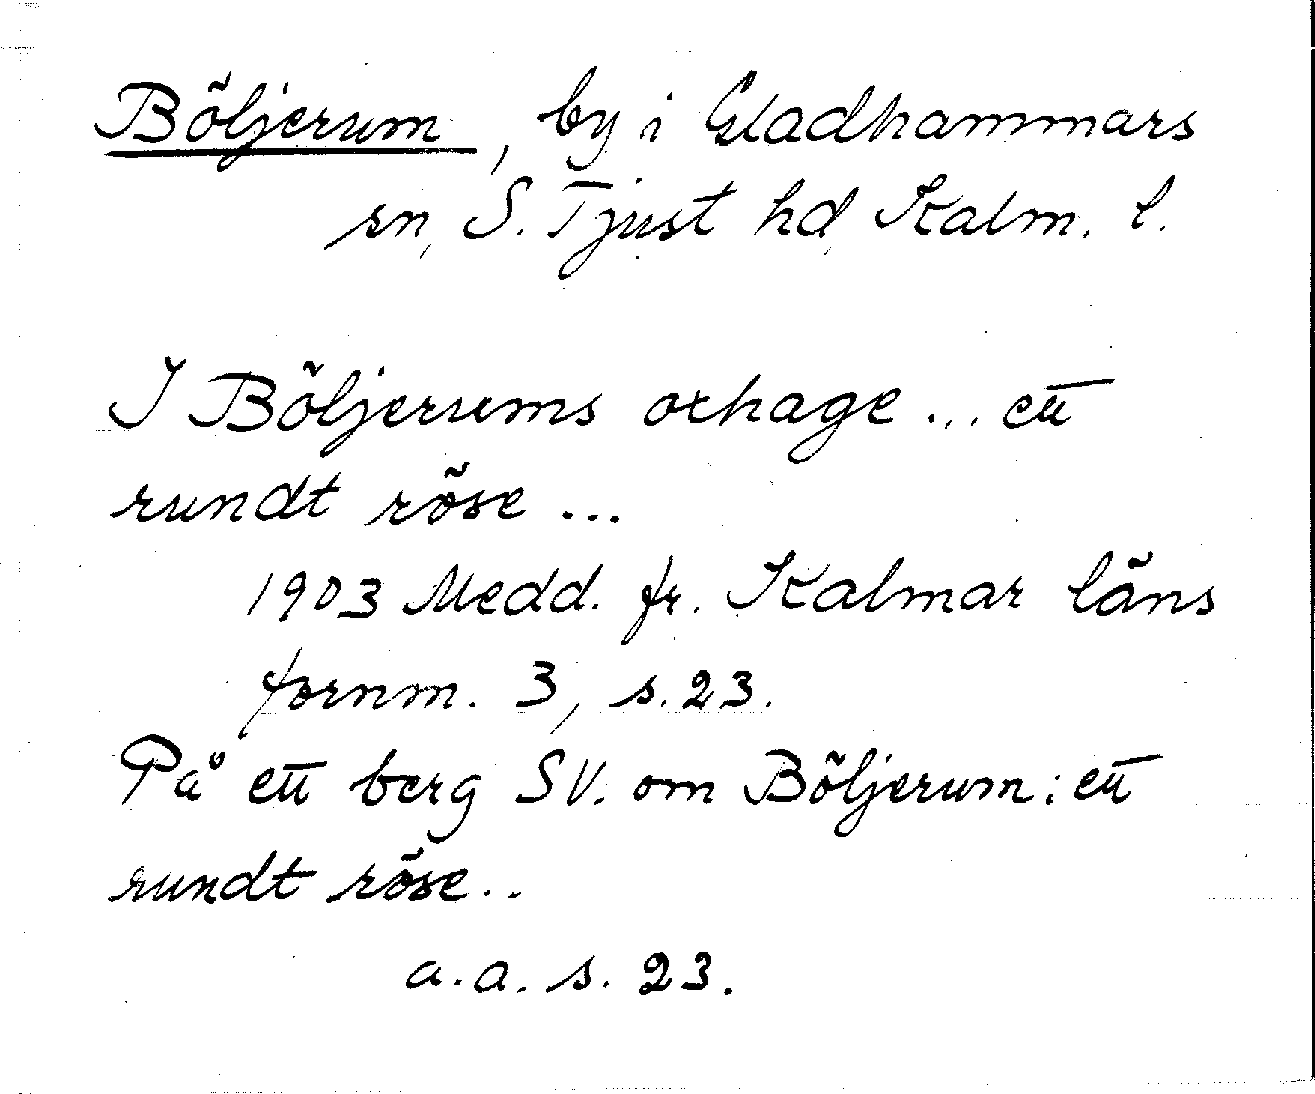 Böljerum, by i Gladhammars
sn, S. Tjust hd, Kalm. l.
I Böljerums oxhage ... ett
rundt röse ...
1903 Medd. fr. Kalmar läns
fornm. 3, s. 23.
På ett berg SV. om Böljerum: ett
rundt röse..
a.a. s. 23.